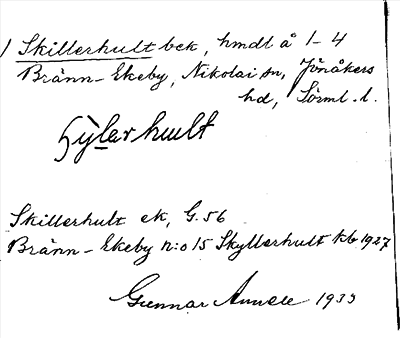 1 Skillerhult bek, hmdt å 1-4
Bränn-Ekeby, Nikolai sn, Jönåkers
hd, Sörml. l.
Skillerhult ek, G. 56
Bränn-Ekeby n:o 15 Skyllerhult kb 1927
Gunnar 1933